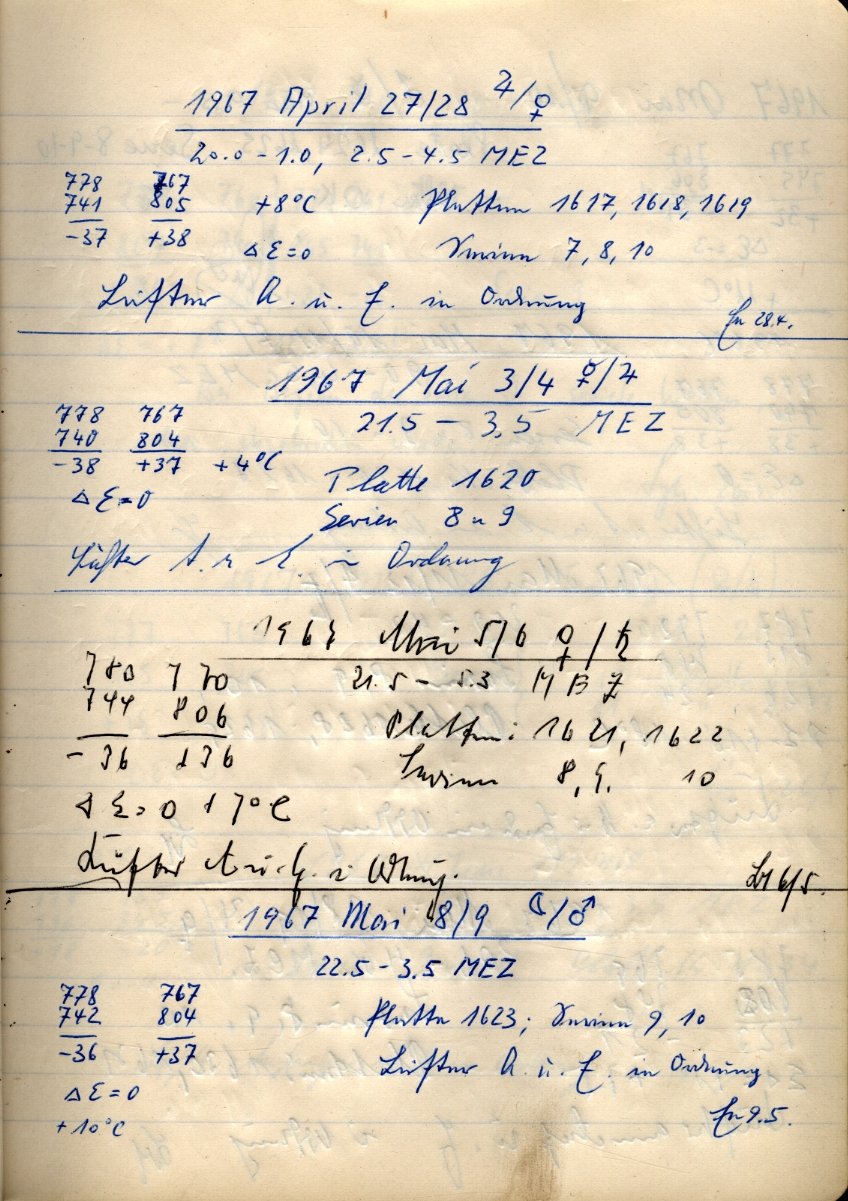 1967 April 27/28 ♃/♀
20.0 - 1.0, 2.5 - 4.5 MEZ
778 767
741 805 +8°C Platten 1617, 1618, 1619
-37 +38 ΔE=0 Serien 7, 8, 10
Lüfter A. u. E. in Ordnung
28.4.
1967 Mai 3/4 ☿/♃
778 767 21.5 - 3.5 MEZ
740 804
-38 +37 +4°C Platte 1620
ΔE=0 Serien 8 u 9
Lüfter A. u. E. in Ordnung
1967 Mai 5/6 ♀/♄
780 770 21.5 - 5.3 MEZ
744 806 Platten: 1621, 1622
-36 +36 Serien 8, 9. 10
ΔE=0 +7°C
Lüfter A. u. E. i. Ordnung.
6/5.
1967 Mai 8/9 ☾/♂
22.5 - 3.5 MEZ
778 767
742 804 Platte 1623; Serien 9, 10
-36 +37 Lüfter A. u. E. in Ordnung
ΔE=0
+10°C 9.5.